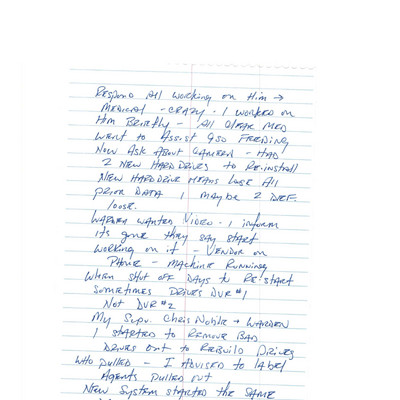 Respond All working on Him →
Medical - crazy. I worked on
Him Briefly - All clear med
went to Assist 950 Feeding
Now Ask About Camera - Had
2 New Hard Drives to Re-install
New Hard Drive means Lose All
prior Data 1 maybe 2 Drive
loose.
Warden wanted Video. I inform
its gone they say start
working on it - Vendor on
Phone - Machine Running
When shut off Days to Re-start
sometimes Drives DVR #1
Not DVR #2
My Supv. Chris Nobile → Warden
I started to Remove Bad
Drives out to Rebuild Drives
who pulled - I advised to label
Agents pulled out
New System started the same